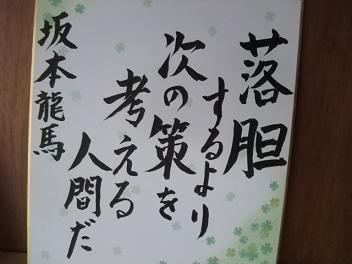 落胆
するより
次の策を
考える
人間だ
坂本龍馬